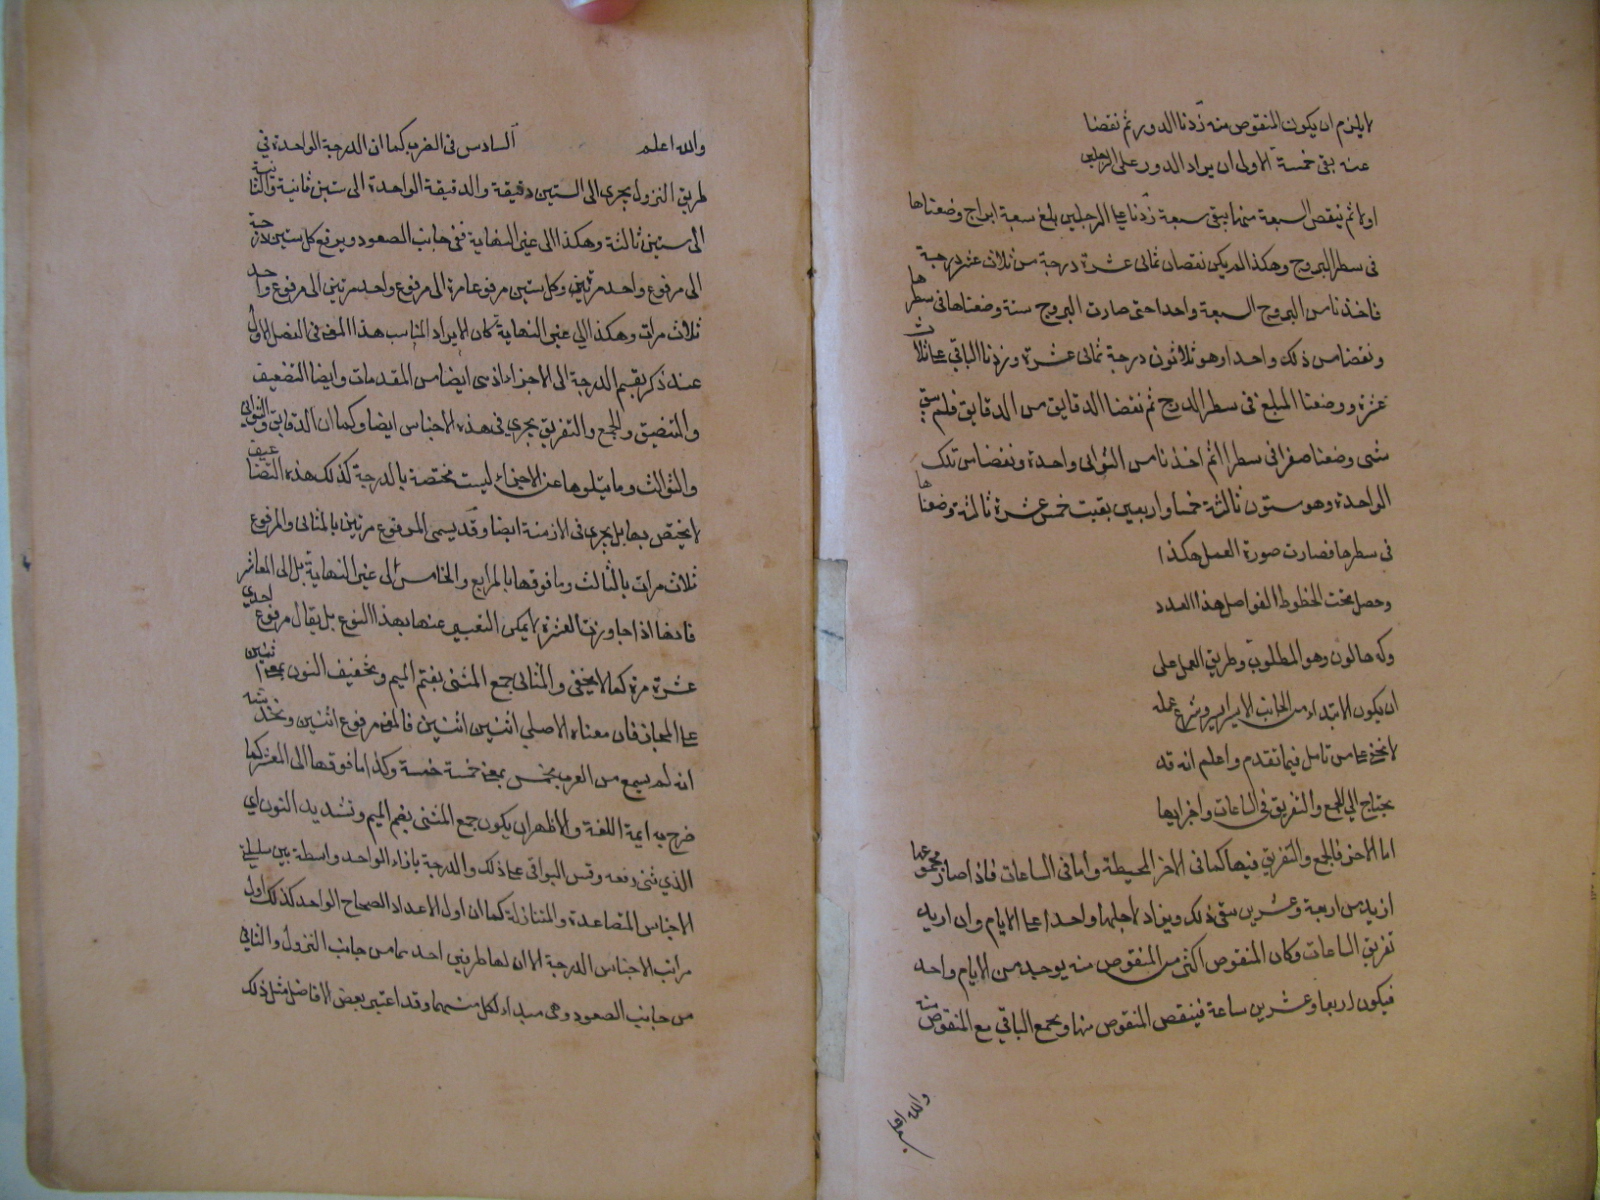 لا يلزم ان يكون المنقوص منه زدنا الدور ثم نقصنا
عنه بقى خمسة الاولى ان يراد الدور على الرجلين
اولا ثم ينقص السبعة منها يبقى سبعة زدنا على الرجلين بلغ سبعة ابراج وضعناها
فى سطر البروج وهكذا لم يكن نقصان ثمانى عشرة درجة من ثلاث عشر درجة
فاخذنا من البروج السبعة واحدا حتى صارت البروج ستة وضعناها فى سطرها
ونقصنا من ذلك واحدا وهو ثلاثون درجة ثمانى عشرة وزدنا الباقى على ثلاث
عشرة ووضعنا المبلغ فى سطر الدرج ثم نقصنا الدقايق من الدقايق فلم يبق
شى وضعنا صفرا فى سطرا ثم اخذنا من الثوانى واحدة ونقصنا من تلك
الواحدة وهو ستون ثالثة خمسا واربعين بقيت خمس عشرة ثالثة وضعناها
فى سطرها فصارت صورة العمل هكذا
وحصل تحت الخطوط الفواصل هذا العدد
وهو المطلوب وطريق العمل على
ان يكون الابتداء من الجانب الايسر
لا يخفى على من تامل فيما تقدم واعلم انه قد
يحتاج الى الجمع والتفريق فى الساعات واجزايها
اما الاجزا فالجمع والتفريق فيها كما فى الاجزا المحيطة واما فى الساعات فاذا صار مجموعها
ازيد من اربعة وعشرين سقى ذلك ويزاد لاجلها واحدا على الايام وان اريد
تفريق الساعات وكان المنقوص اكثر من المنقوص منه يوخد من الايام واحد
فيكون اربعا وعشرين ساعة فينقص المنقوص منها ويجمع الباقى مع المنقوص منه
والله
والله اعلم السادس فى الضرب كما ان الدرجة الواحدة فى
طريق النزول يجرى الى الستين دقيقة والدقيقة الواحدة الى ستين ثانية والثانية
الى ستين ثالثة وهكذا الى غير النهاية ففى جانب الصعود ويرفع كل ستين درجة
الى مرفوع واحد مرة وكل ستين مرفوعا مرة الى مرفوع واحد مرتين الى مرفوع واحد
ثلاث مرات وهكذا الى غير النهاية كان الايراد المناسب هذا المعنى فى الفصل الاول
عند ذكر تقسيم الدرجة الى الاجزاء اذ هى ايضا من المقدمات وايضا التضعيف
والتنصيف والجمع والتفريق يجرى فى هذه الاجناس ايضا وكما ان الدقايق والثوانى
والثوالث وما يتلوها من الاجزاء ليست مختصة بالدرجة كذلك هذه التضاعيف
لا يختص بها بل يجرى فى الازمنة ايضا وقد يسمى المرفوع مرتين بالمثانى والمرفوع
ثلاث مرات بالثالث وما فوقها بالرابع والخامس الى غير النهاية بل الى العاشر
فانها اذا جاوزت العشرة لا يمكن التعبير عنها بهذا النوع بل يقال مرفوع احدى
عشرة مرة كما لا يخفى والمثانى جمع المثنى بفتح الميم وتخفيف النون بمعنى اثنين
على المجاز فان معناه الاصلى اثنين اثنين فالمعنى مرفوع اثنين
انه لم يسمع من العرب مخمس بمعنى خمسة خمسة وكذا ما فوقها الى المعشر كما
صرح به ايمة اللغة والاظهر ان يكون جمع المثنى بضم الميم وتشديد النون اى
الذى ثنى رفعه وقس البواقى على ذلك والدرجة بازاء الواحد واسطة بين سلسلتى
الاجناس المتصاعدة والمتنازلة كما ان اول الاعداد الصحاح الواحد كذلك اول
مراتب الاجناس الدرجة الا ان لها طرفين احدهما من جانب النزول والثانى
من جانب الصعود وهى مبداء لكل منهما وقد اعتبر بعض الافاضل مثل ذلك